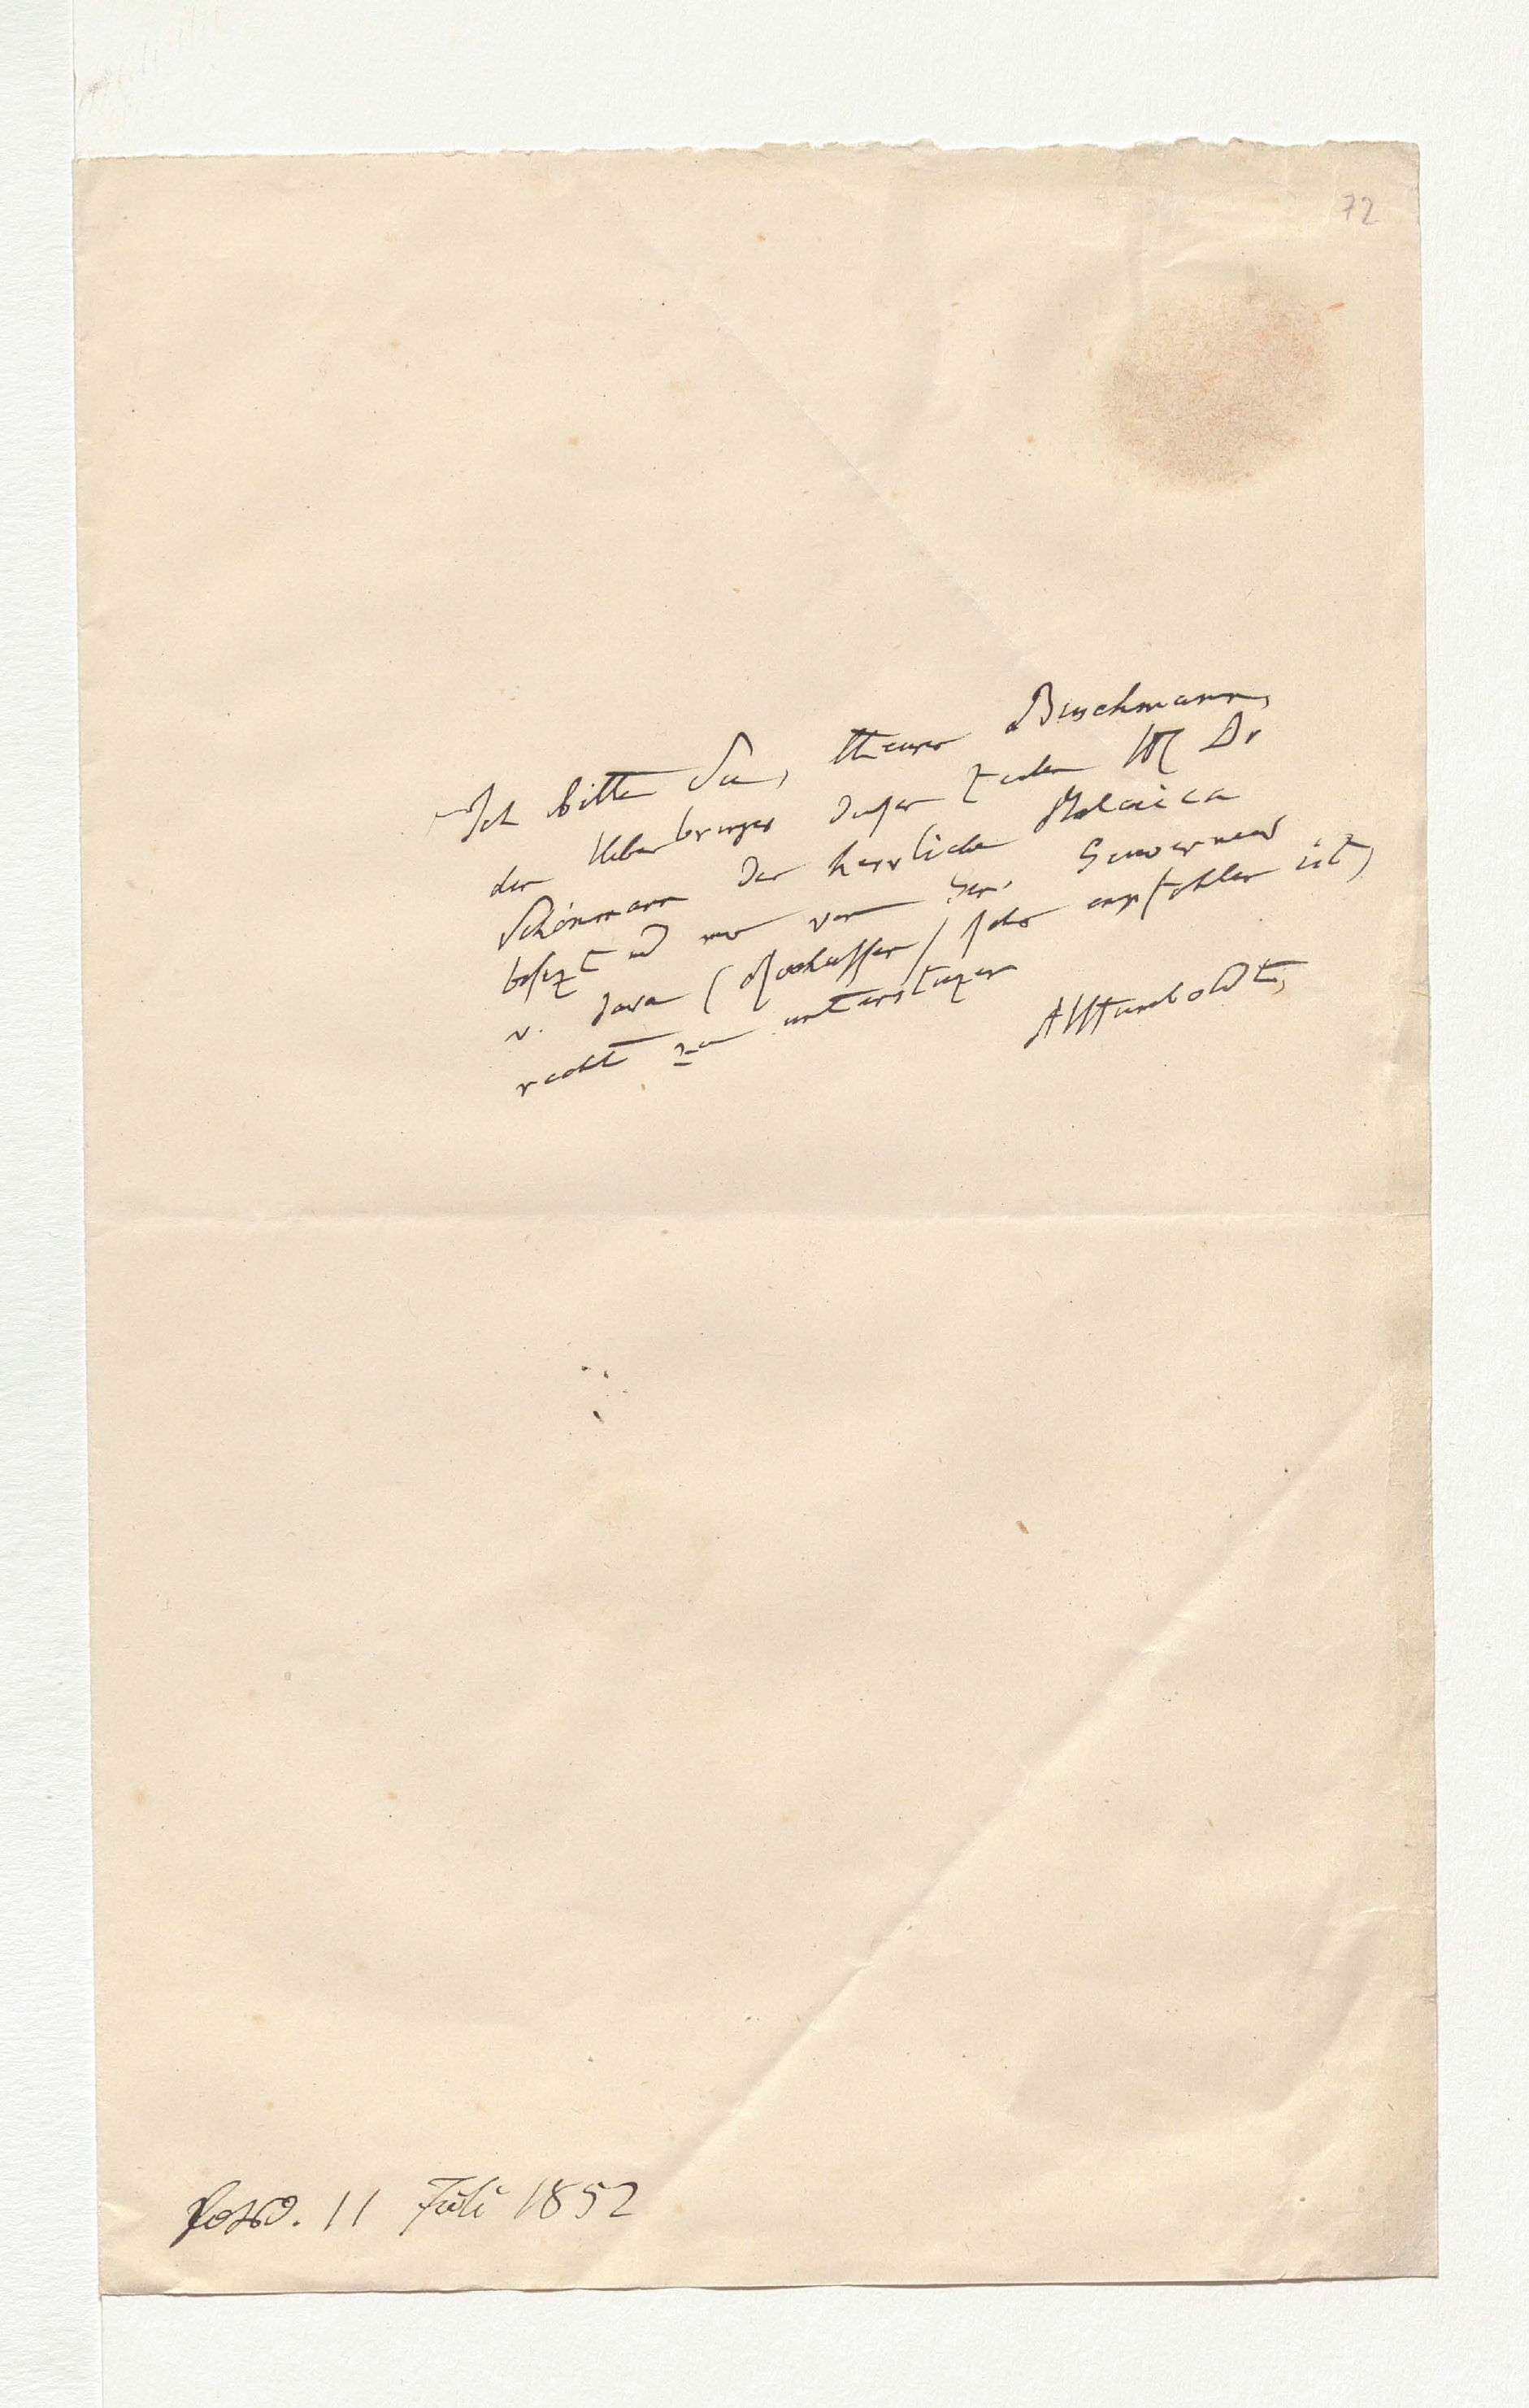 72
Ich bitte Sie, theurer Buschmann,
den Ueberbringer dieser Zeilen H Dr
Schönmann der herrliche Malaica
besizt und mir von Gen. Gouverneur
v. Java (Rochussen) sehr empfohlen ist,
recht zu unterstüzen
AlHumboldt,
11 Juli 1852